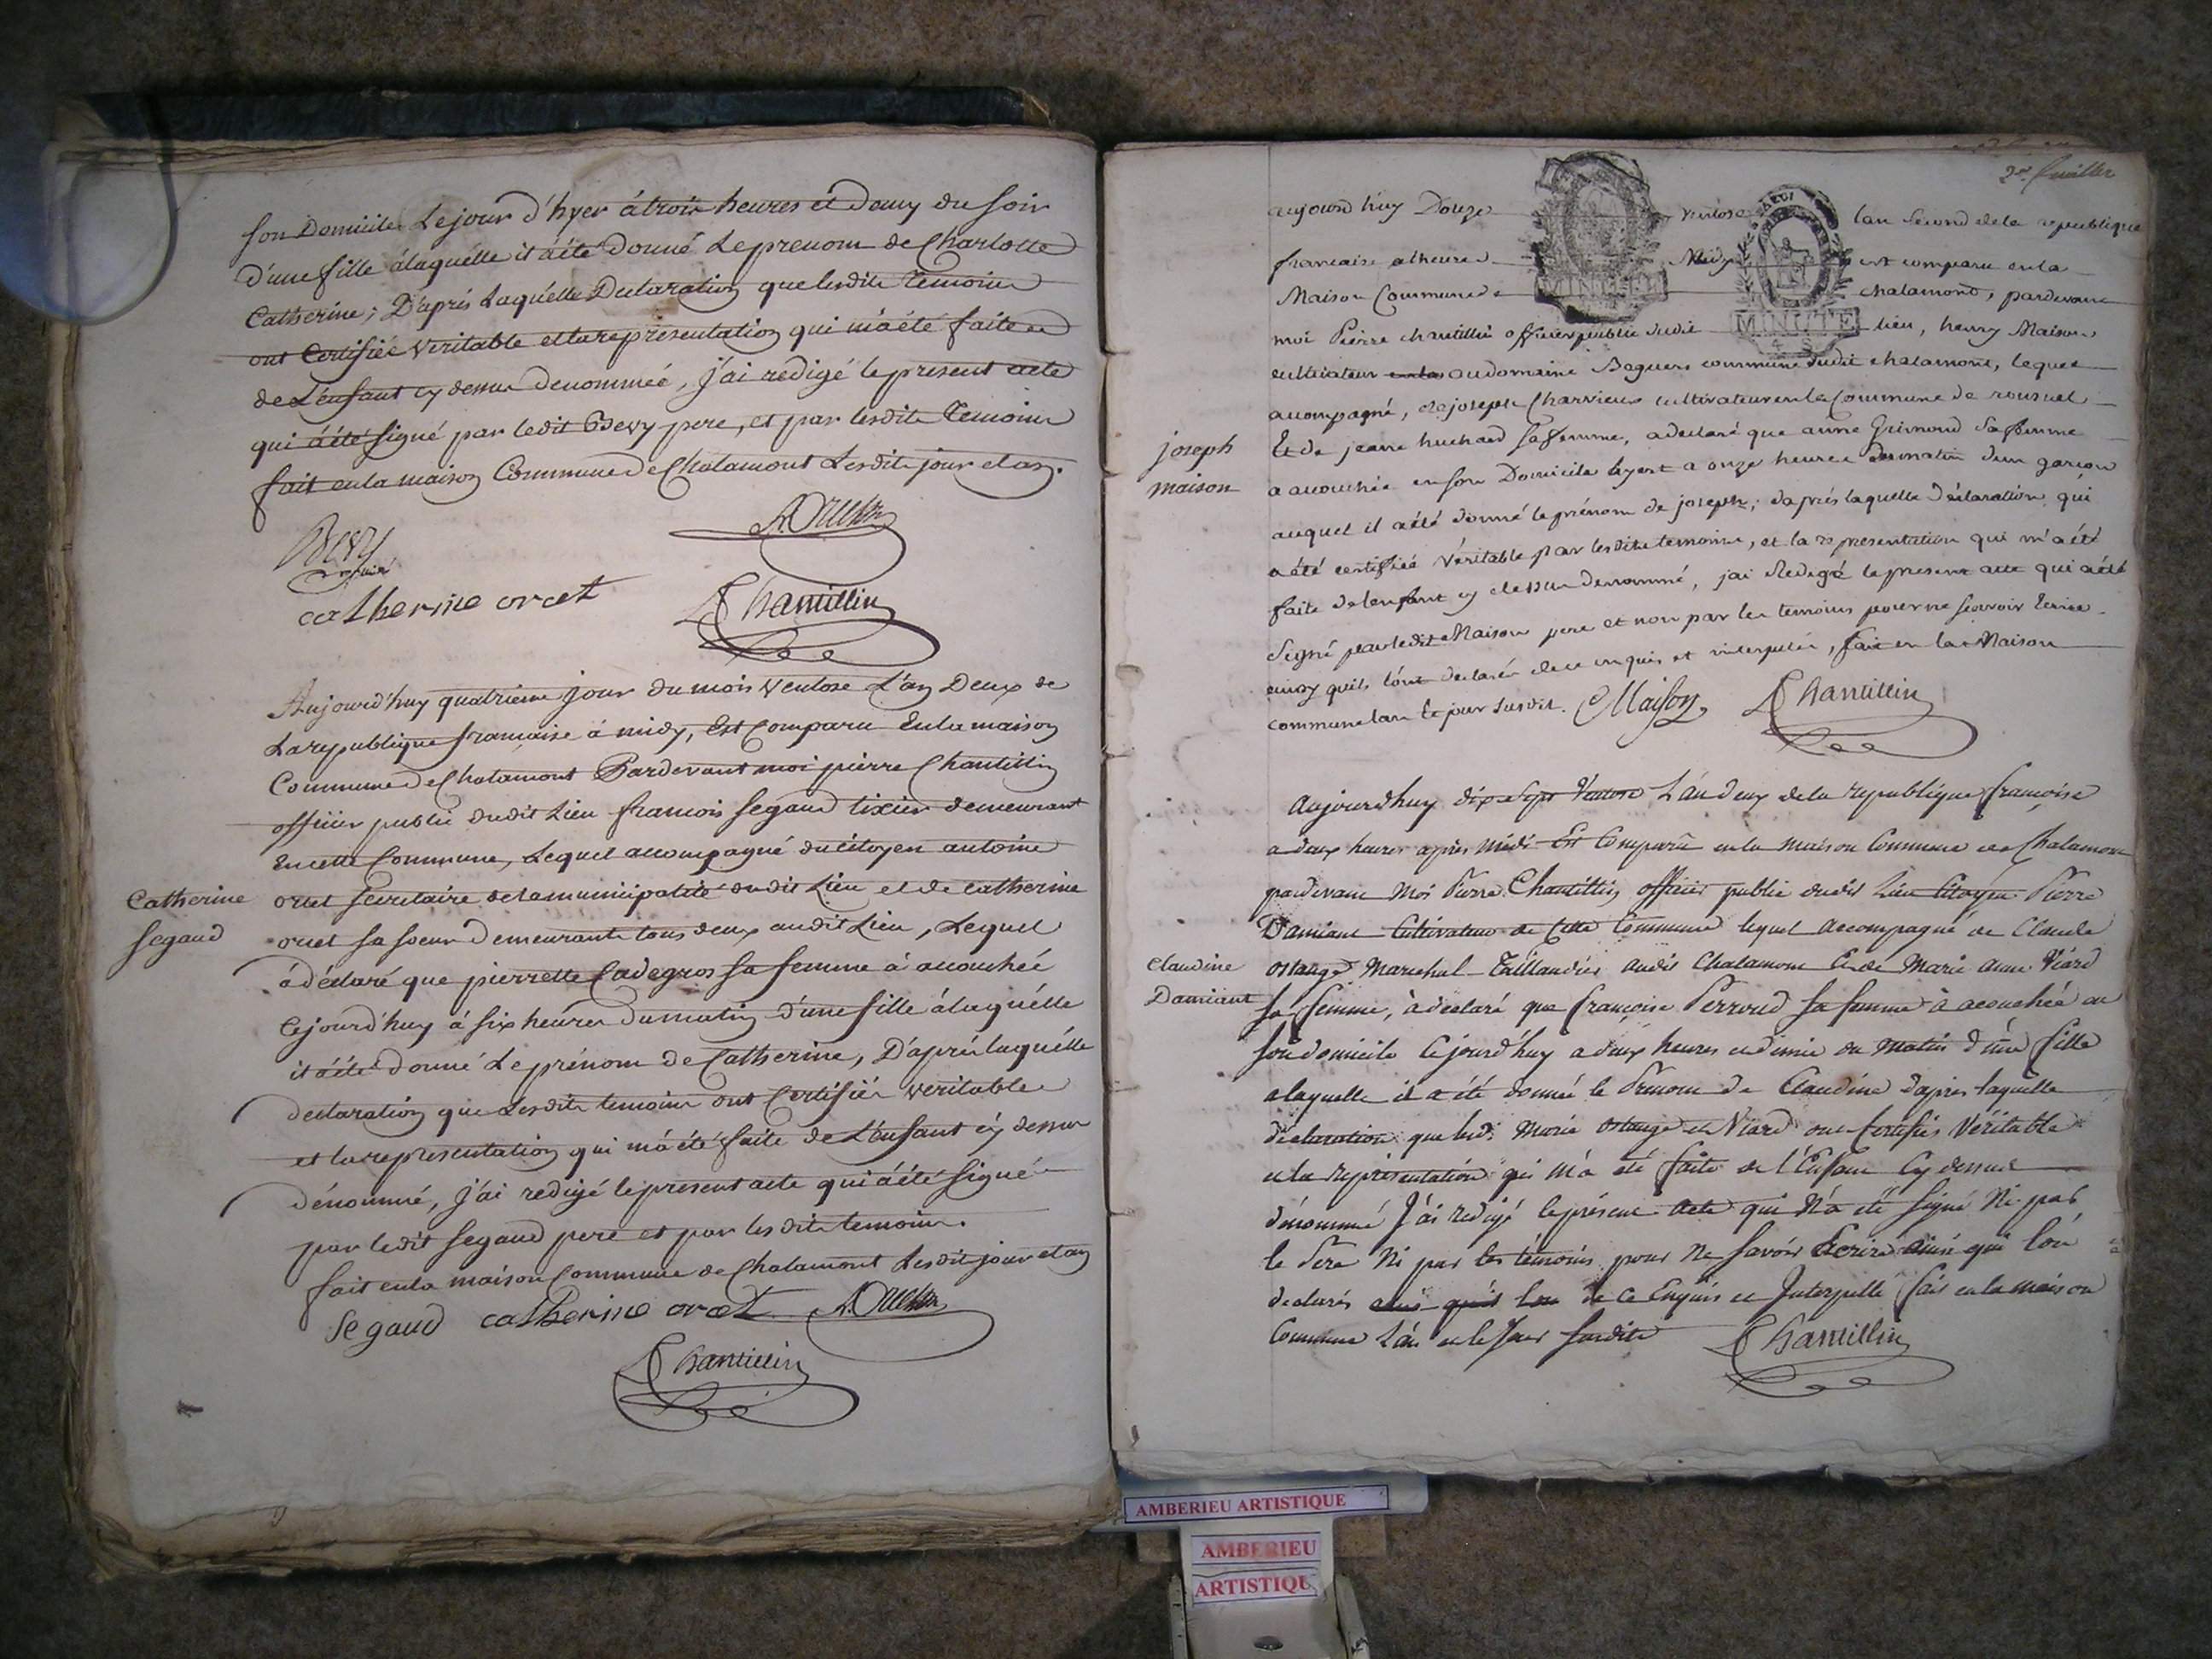 son Domicile Le jour d'hyer á trois heures et Demy du soir
d'une fille álaquélle il áété donné Le prenom de Charlotte
Catherine; D'aprés Laquélle Declaration que lesdits temoins
ont Certifiée veritable et la représentation qui m'aété faite
de L'enfant cy dessus denommeé, j'ai redigé le present acte
qui áété signé par ledit Bevy pere, et par lesdits Temoins
fait en la maison Commune de Chalamont Lesdits jour et an.
Bevy
catherine orcet
Chantillin
Aujourd'huy quatrième jour du mois Ventose L'an Deux de
La republique francaise á midy, Est Comparu En la maison
Commune de Chalamont Pardevant moi pierre Chantillin
officier public dudit Lieu francois segaud tixier demeurant
En cette Commune, Lequel accompagné du citoyen antoine
orcet secretaire de la municipalité dudit Lieu et de catherine
orcet sa soeur demeurante tous deux audit Lieu, Lequel
á déclaré que pierrette Cadegros sa femme á accouchée
Cejourd'huy á six heures du matin d'une fille álaquélle
il áété donné Le prénom de Catherine, D'aprés laquélle
declaration que Lesdits temoins ont Certifiée veritable
et la representation qui m'áété faite de L'enfant cy dessus
dénommé, j'ai redigé le present acte qui áété signé
par ledit segaud pere et par les dits temoins.
fait en la maison Commune de Chalamont Lesdit jour et an
Catherine
segaud
Segaud catherine orcet
Chantillin
2e. feuillet
aujourd'huy Douze ventose lan second de la republique
francaise a lheure de Midy est comparu en la
Maison Commune de chalamont, pardevant
moi Pierre chantillin officier public dudit lieu, henry Maison
MINUTE
cultivateur au domaine Baguers commune dudit chalamont, lequel
accompagné, de joseph Charvieux cultivateur en la Commune de
Et de jeanne huchard sa femme, a declaré que anne Grimond sa femme
a accouchée en son Domicile hyer a onze heures du matin d'un garcon
auquel il aété donné le prénom de joseph; d'aprés laquelle déclaration qui
a été certifiée véritable par lesdits temoins, et la representation qui m'a été
faite de lenfant cy dessus denommé, jai Redigé le present acte qui aété
signé par ledit Maison pere et non par les temoins pour ne scavoir Ecrire
ainsy qu'ils l'ont declarés de ce enquis et interpellés, fait en la Maison
commune lan et jour susdit. Maison Chantillin
joseph
maison
Aujourdhuy dix Sept Ventose L'an deux de la république françoise
a deux heures aprés midi Est Comparû en la maison Commune de Chalamont
pardevant Moi Pierre Chantillin officier public dudit Lieu Citoyen Pierre
Damians Cultivateur de Cette Commune lequel accompagné de Claude
ostange Marechal Taillandier audit Chalamont et de Marie anne Viard
sa femme, à declaré que françoise Perroud sa femme à accouchée en
son domicile Cejourd'huy a deux heures et demie du matin d'une fille
a laquelle il a été donnée le Prenom de Claudine d'apres laquelle
declaration que ledi. Marie ostange et Viard ont certifiés Véritable
et la représentation qui m'a été faite de l'Enfant Cy dessus
dénommé J'ai redigé le présent acte qui N'a été signé Ni par
le Pere Ni par les témoins pour Ne savoir Ecrire ainsi qui l'on
declarés de Ce Enquis et Interpellé fait en la maison
Commune L'an et le Jour susdits Chantillin
Claudine
Damians
AMBERIEU ARTISTIQUE
AMBERIEU
ARTISTIQU